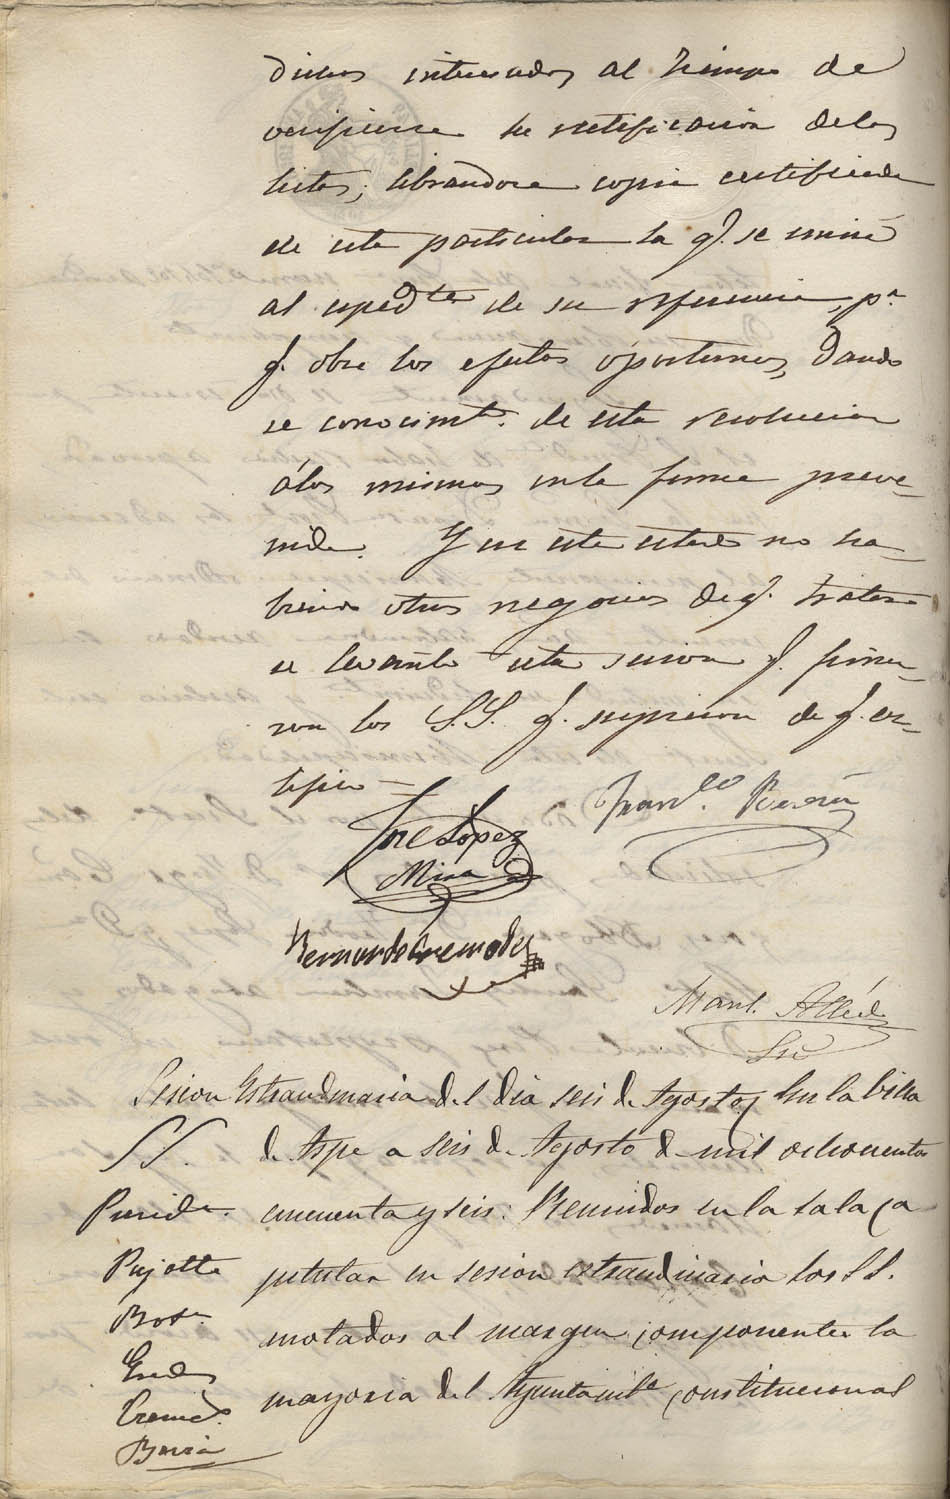 dichos interesados al tiempo de
verificarse la rectificacion delas
listas; librandose copia certificada
de este particular la q.e se unirá
al exped.te de su referencia, p.a
q.e obre los efectos oportunos, dando
se conocimt.o de esta resolucion
álos mismos enla forma preve-
nida. Y en este estado no ha-
biendo otros negocios de q.e tratar
se levantó esta sesion q.e firma-
ron los S.S. q.e supieron de q.e cer-
tifico=
José Lopez
Mira
Fran.co
Bernardo Cremades
Man.l
Srio
Sesion Extraordinaria del dia seis de Agosto} En la billa
de Aspe a seis de Agosto de mil ochocientos
cincuenta y seis: Reunidos en la sala ca
pitular en sesion extraordinaria los S S.
notados al margen componentes la
mayoria del Ayuntami.to constitucional
S S.
Presid.te
Pujalte
Bot.a
Cremad.s